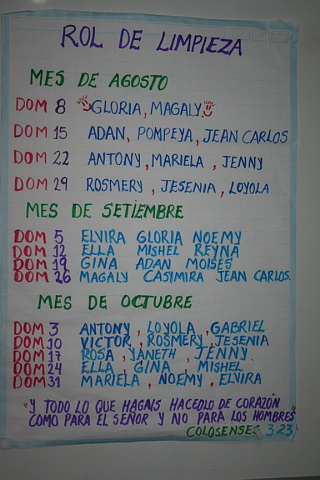 ROL DE LIMPIEZA
MES DE AGOSTO
DOM 8 GLORIA, MAGALY
DOM 15 ADAN, POMPEYA, JEAN CARLOS
DOM 22 ANTONY, MARIELA, JENNY
DOM 29 ROSMERY, JESENIA, LOYOLA
MES DE SETIEMBRE
DOM 5 ELVIRA GLORIA NOEMY
DOM 12 ELLA MISHEL REYNA
DOM 19 GINA ADAN MOISES
DOM 26 MAGALY CASIMIRA JEAN CARLOS.
MES DE OCTUBRE
DOM 3 ANTONY, LOYOLA, GABRIEL
DOM 10 VICTOR, ROSMERY, JESENIA
DOM 17 ROSA, YANETH, JENNY
DOM 24 ELLA, GINA, MISHEL
DOM 31 MARIELA, NOEMY, ELVIRA
"Y TODO LO QUE HAGAIS HACEDLO DE CORAZÓN
COMO PARA EL SEÑOR Y NO PARA LOS HOMBRES"
COLOSENSES 3:23